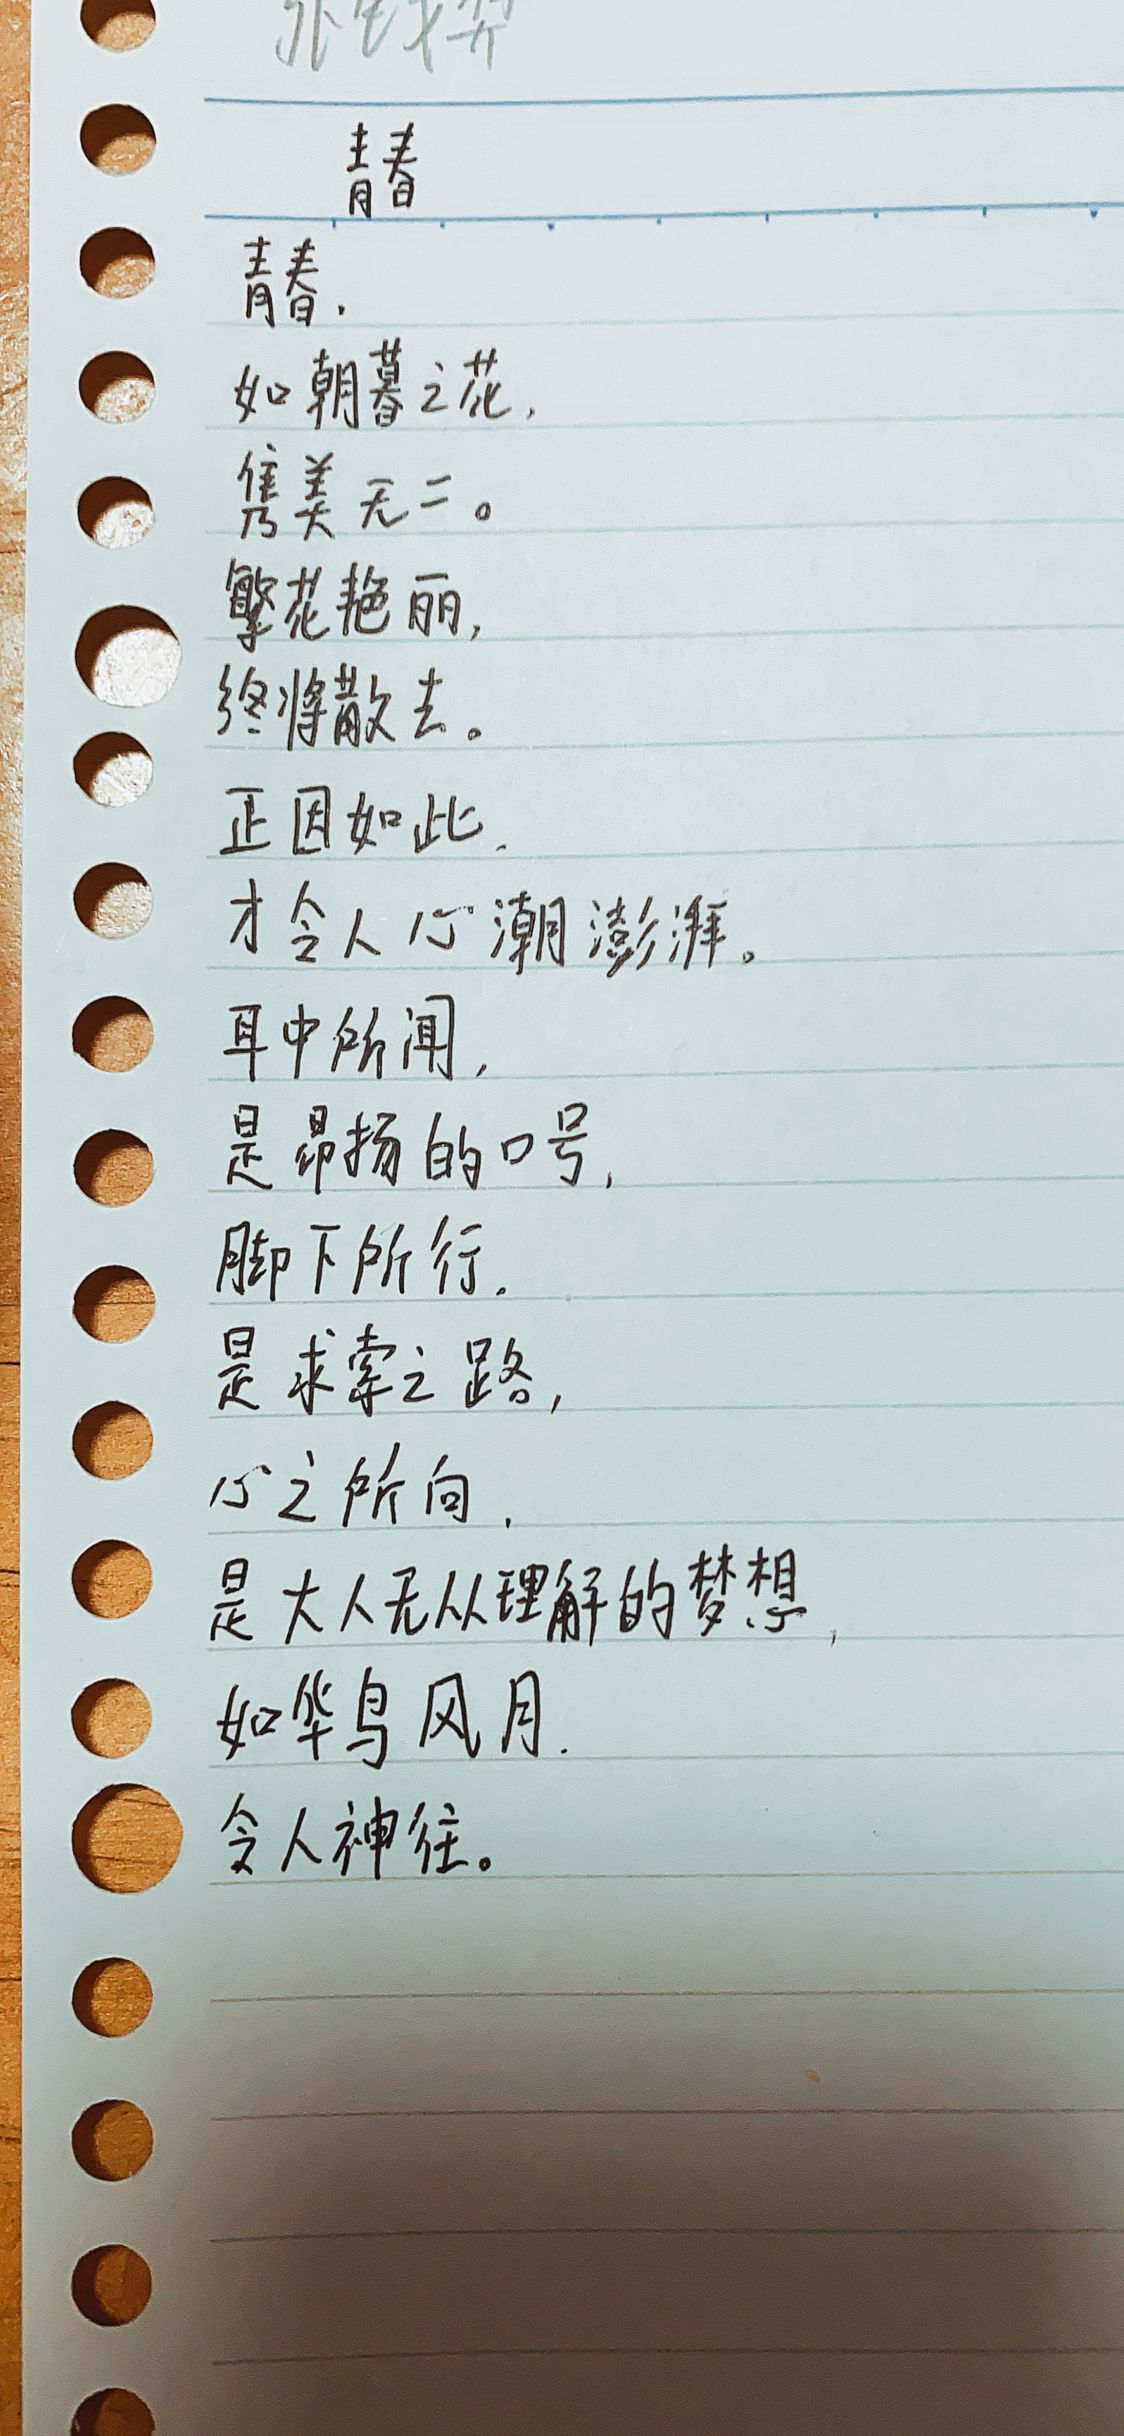 青春
青春.
如朝暮之花,
隽美无二。
繁花艳丽,
终将散去。
正因如此.
才令人心潮澎湃。
耳中所闻,
是昂扬的口号,
脚下所行.
是求索之路,
心之所向.
是大人无从理解的梦想,
如华鸟风月.
令人神往。